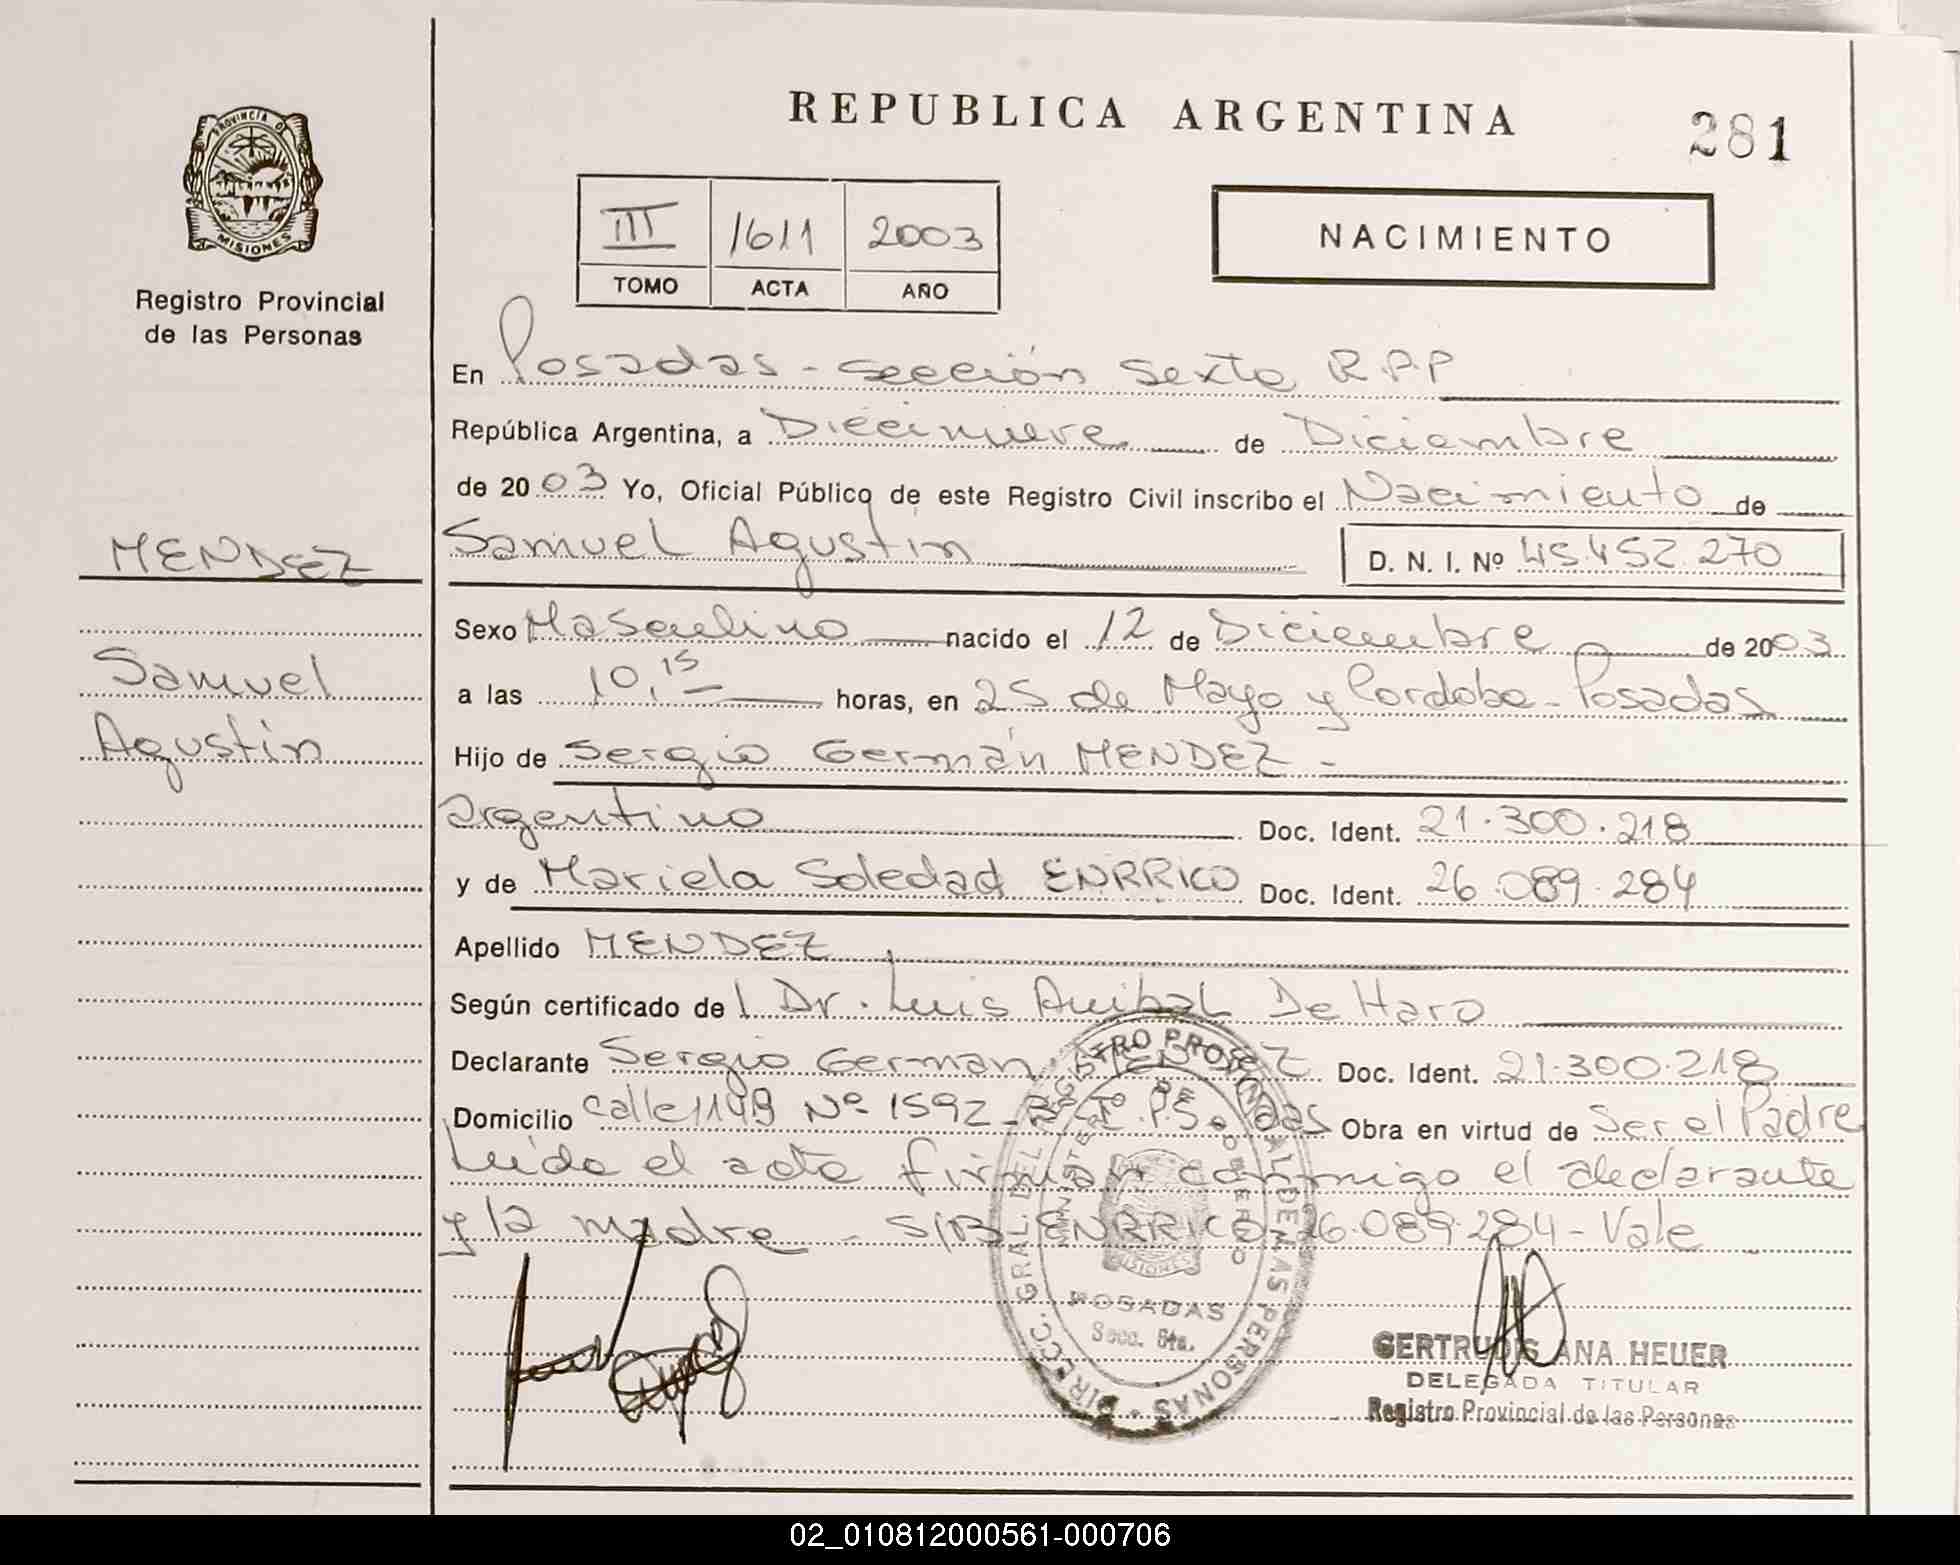 REPUBLICA ARGENTINA
281
PROVINCIA DE
MISIONES
Registro Provincial
de las Personas
III 1611 2003
TOMO ACTA AÑO
NACIMIENTO
En Posadas - sección Sexta R.P.P
República Argentina, a Diecinueve de Diciembre
de 2003 Yo, Oficial Público de este Registro Civil inscribo el Nacimiento de
MENDEZ
Samuel Agustín
D. N. I. Nº 45.452.270
Sexo Masculino nacido el 12 de Diciembre de 2003
Samuel
Agustín
a las 10,15 horas, en 25 de Mayo y Cordoba - Posadas
Hijo de Sergio Germán MENDEZ -
argentino Doc. Ident. 21.300.218
y de Mariela Soledad ENRRICO Doc. Ident. 26.089.284
Apellido MENDEZ
Según certificado de l Dr. Luis Anibal De Haro
Declarante Sergio German MENDEZ Doc. Ident. 21.300.218
Domicilio calle 119 Nº 1592 - Pdas Obra en virtud de Ser el Padre
Leída el acta firman conmigo el declarante
y la madre - S/B ENRRICO - 26.089.284 - Vale
POSADAS
Secc. 6ta.
GERTRUDIS ANA HEUER
DELEGADA TITULAR
Registro Provincial de las Personas
02_010812000561-000706